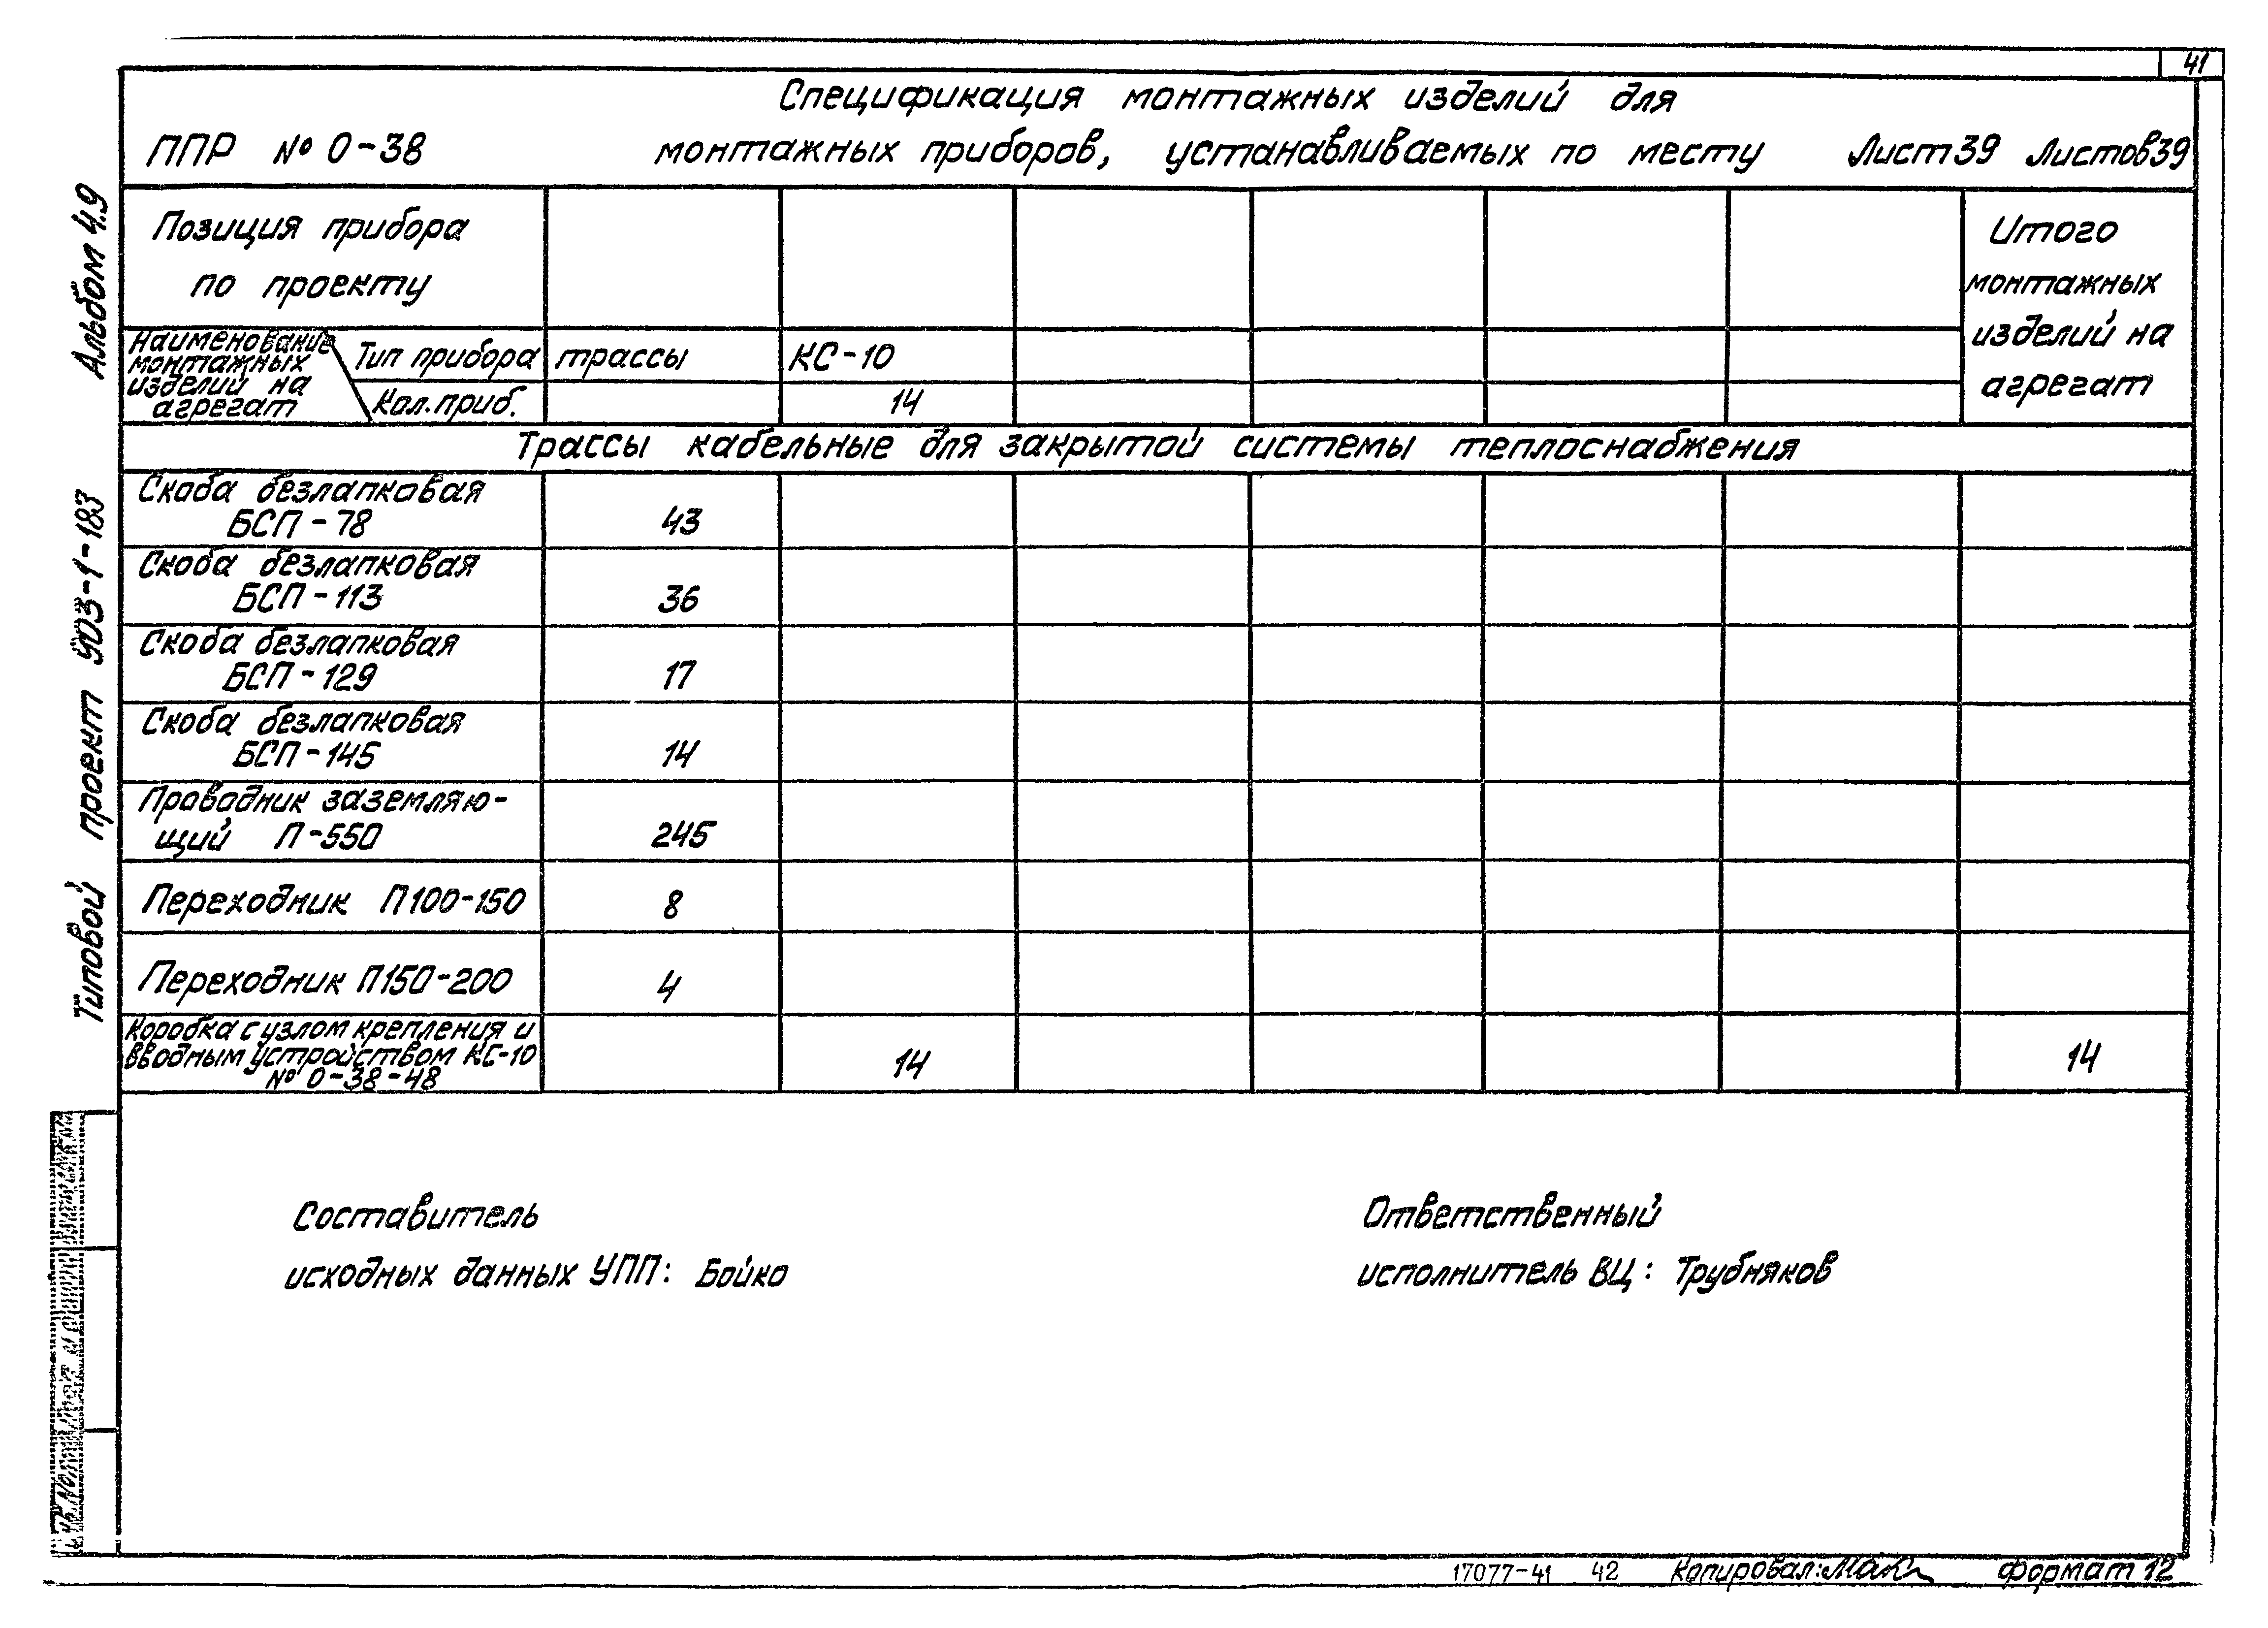 41
Спецификация монтажных изделий для
ППР № 0-38 монтажных приборов, устанавливаемых по месту Лист 39 Листов 39
Альбом 4.9
Типовой проект 903-1-183
Позиция прибора
по проекту
Итого
монтажных
изделий на
агрегат
Наименование
монтажных
изделий на
агрегат
Тип прибора трассы КС-10
Кол. приб. 14
Трассы кабельные для закрытой системы теплоснабжения
Скоба безлапковая
БСП-78 43
Скоба безлапковая
БСП-113 36
Скоба безлапковая
БСП-129 17
Скоба безлапковая
БСП-145 14
Проводник заземляю-
щий П-550 245
Переходник П100-150 8
Переходник П150-200 4
Коробка с узлом крепления и
вводным устройством КС-10 14 14
№ 0-38-48
Составитель
исходных данных УПП: Бойко
Ответственный
исполнитель ВЦ: Трубняков
17077-41 42 Копировал: Формат 12